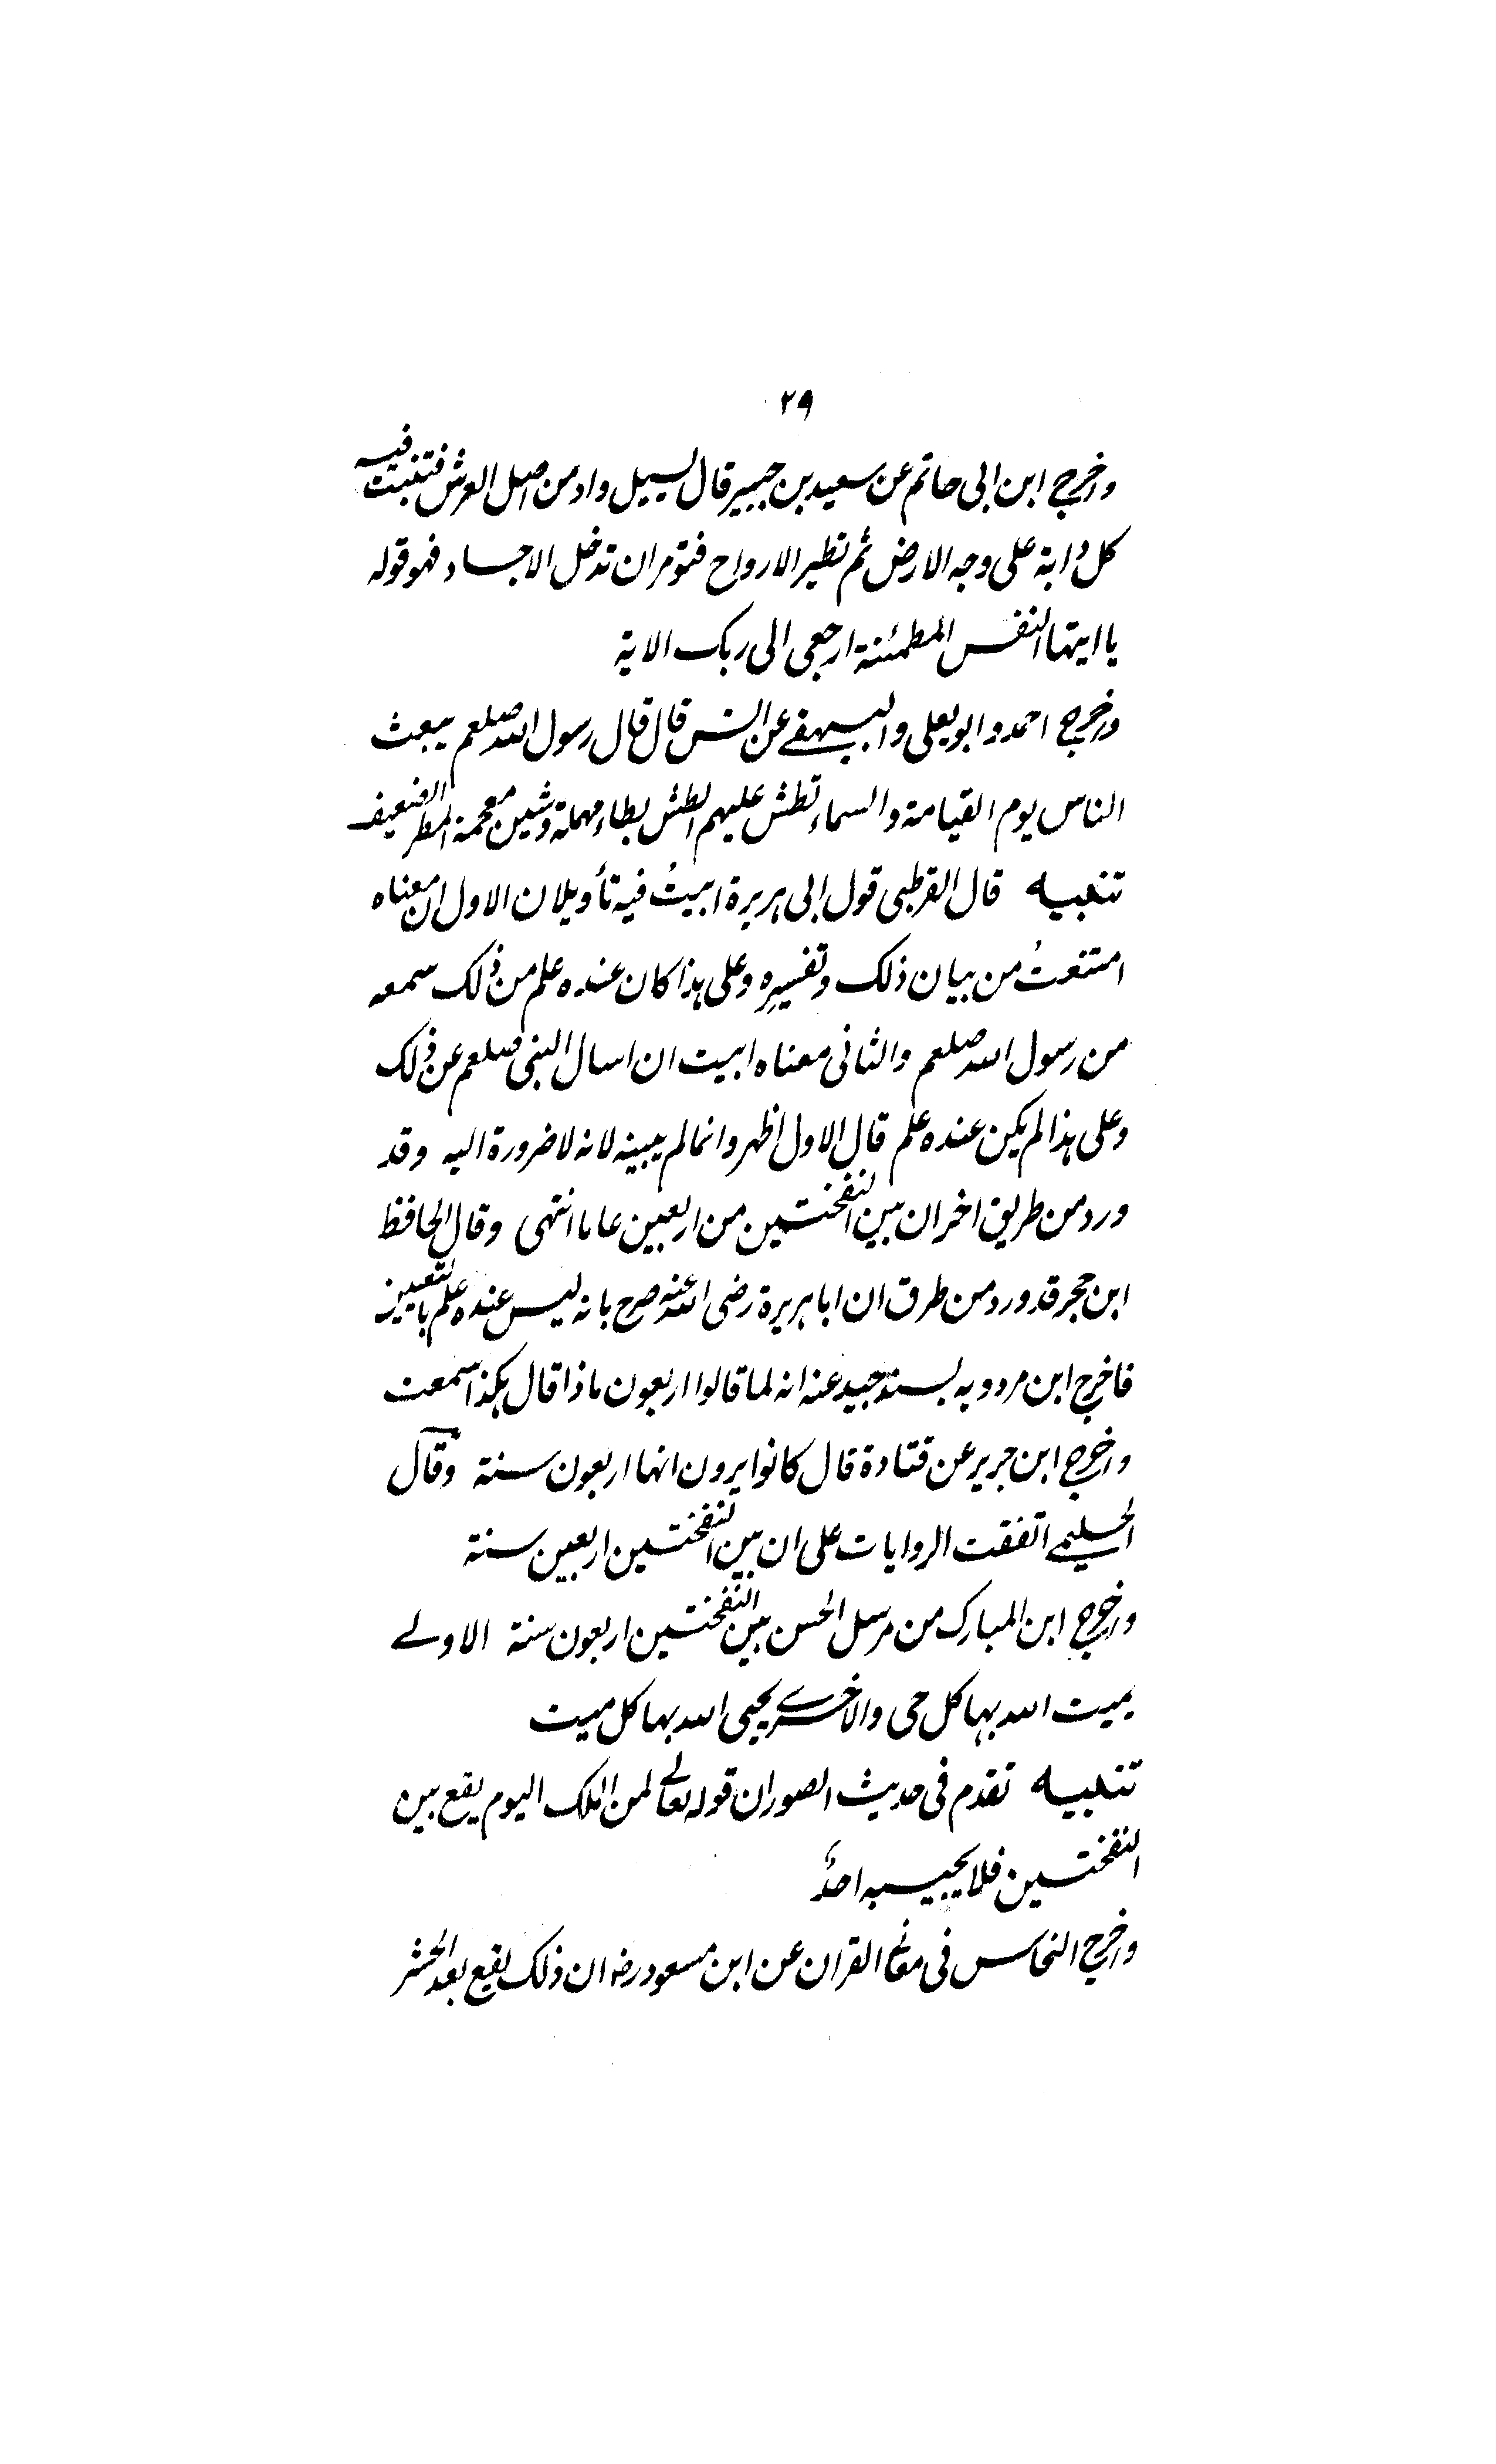 ٢٩
واخرج ابن ابی حاتم عن سعید بن جبیر قال یسیل واد من اصل العرش فتنبت فیه
کل دابة علی وجه الارض ثم تطیر الارواح فتؤمر ان تدخل الاجساد فهو قوله
یا ایتها النفس المطمئنة ارجعی الی ربک الایة
واخرج احمد و ابو یعلی والبیهقے عن انس قال قال رسول الله صلعم یبعث
الناس یوم القیامة والسماء تطش علیهم الطش بطاء مهملة وشین معجمة المطر الضعیف
تنبیه قال القرطبی قول ابی هریرة ابیتُ فیه تأویلان الاول ان معناه
امتنعتُ من بیان ذلک وتفسیرِه وعلی هذا کان عنده علم من ذلک سمعه
من رسول الله صلعم والثانی معناه ابیت ان اسال النبی صلعم عن ذلک
وعلی هذا لم یکن عنده علم قال الاول اظهر وانما لم یبینه لانه لا ضرورة الیه وقد
ورد من طریق اخر ان بین النفختین من اربعین عاما انتهی وقال الحافظ
ابن حجر قد ورد من طرق ان ابا هریرة رضی الله عنه صرح بانه لیس عنده علم بالتعیین
فاخرج ابن مردویه بسند جید عنه انه لما قالوا اربعون ماذا قال هکذا سمعت
واخرج ابن جریر عن قتادة قال کانوا یرون انها اربعون سنة وقال
الحلیمے اتفقت الروایات علی ان بین النفختین اربعین سنة
واخرج ابن المبارک من مرسل الحسن بین النفختین اربعون سنة الاولے
یمیت الله بها کل حی والاخرے یحیی الله بها کل میت
تنبیه تقدم فی حدیث الصور ان قوله تعالے لمن الملک الیوم یقع بین
النفختین فلا یجیبه احدٌ
واخرج النحاس فی معانی القران عن ابن مسعود رضـ ان ذلک یقع بعد الحشر